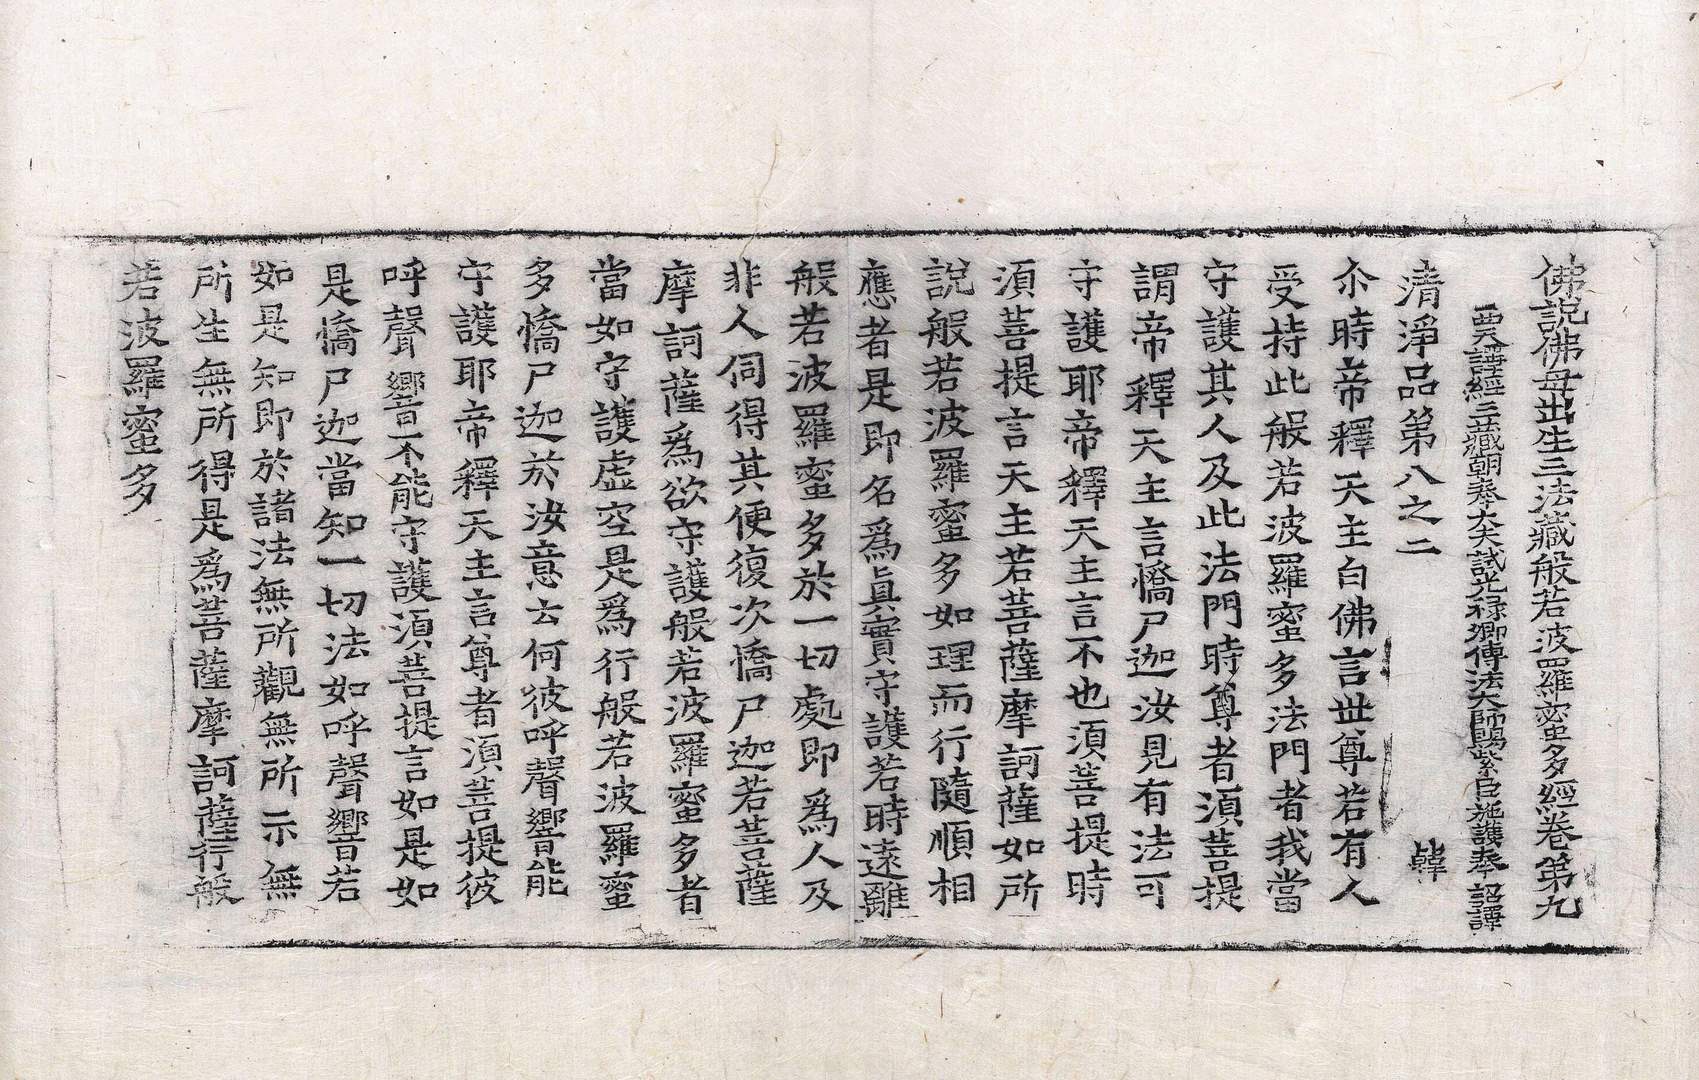 佛說佛母出生三法藏般若波羅蜜多經卷第九
西天譯經三藏朝奉大夫試光祿卿傳法大師賜紫臣施護奉 詔譯
清淨品第八之二
韓
尒時帝釋天主白佛言世尊若有人
受持此般若波羅蜜多法門者我當
守護其人及此法門時尊者須菩提
謂帝釋天主言憍尸迦汝見有法可
守護耶帝釋天主言不也須菩提時
須菩提言天主若菩薩摩訶薩如所
說般若波羅蜜多如理而行隨順相
應者是即名為眞實守護若時遠離
般若波羅蜜多於一切處即為人及
非人伺得其便復次憍尸迦若菩薩
摩訶薩為欲守護般若波羅蜜多者
當如守護虛空是為行般若波羅蜜
多憍尸迦於汝意云何彼呼聲響能
守護耶帝釋天主言尊者須菩提彼
呼聲響不能守護須菩提言如是如
是憍尸迦當知一切法如呼聲響若
如是知即於諸法無所觀無所示無
所生無所得是為菩薩摩訶薩行般
若波羅蜜多